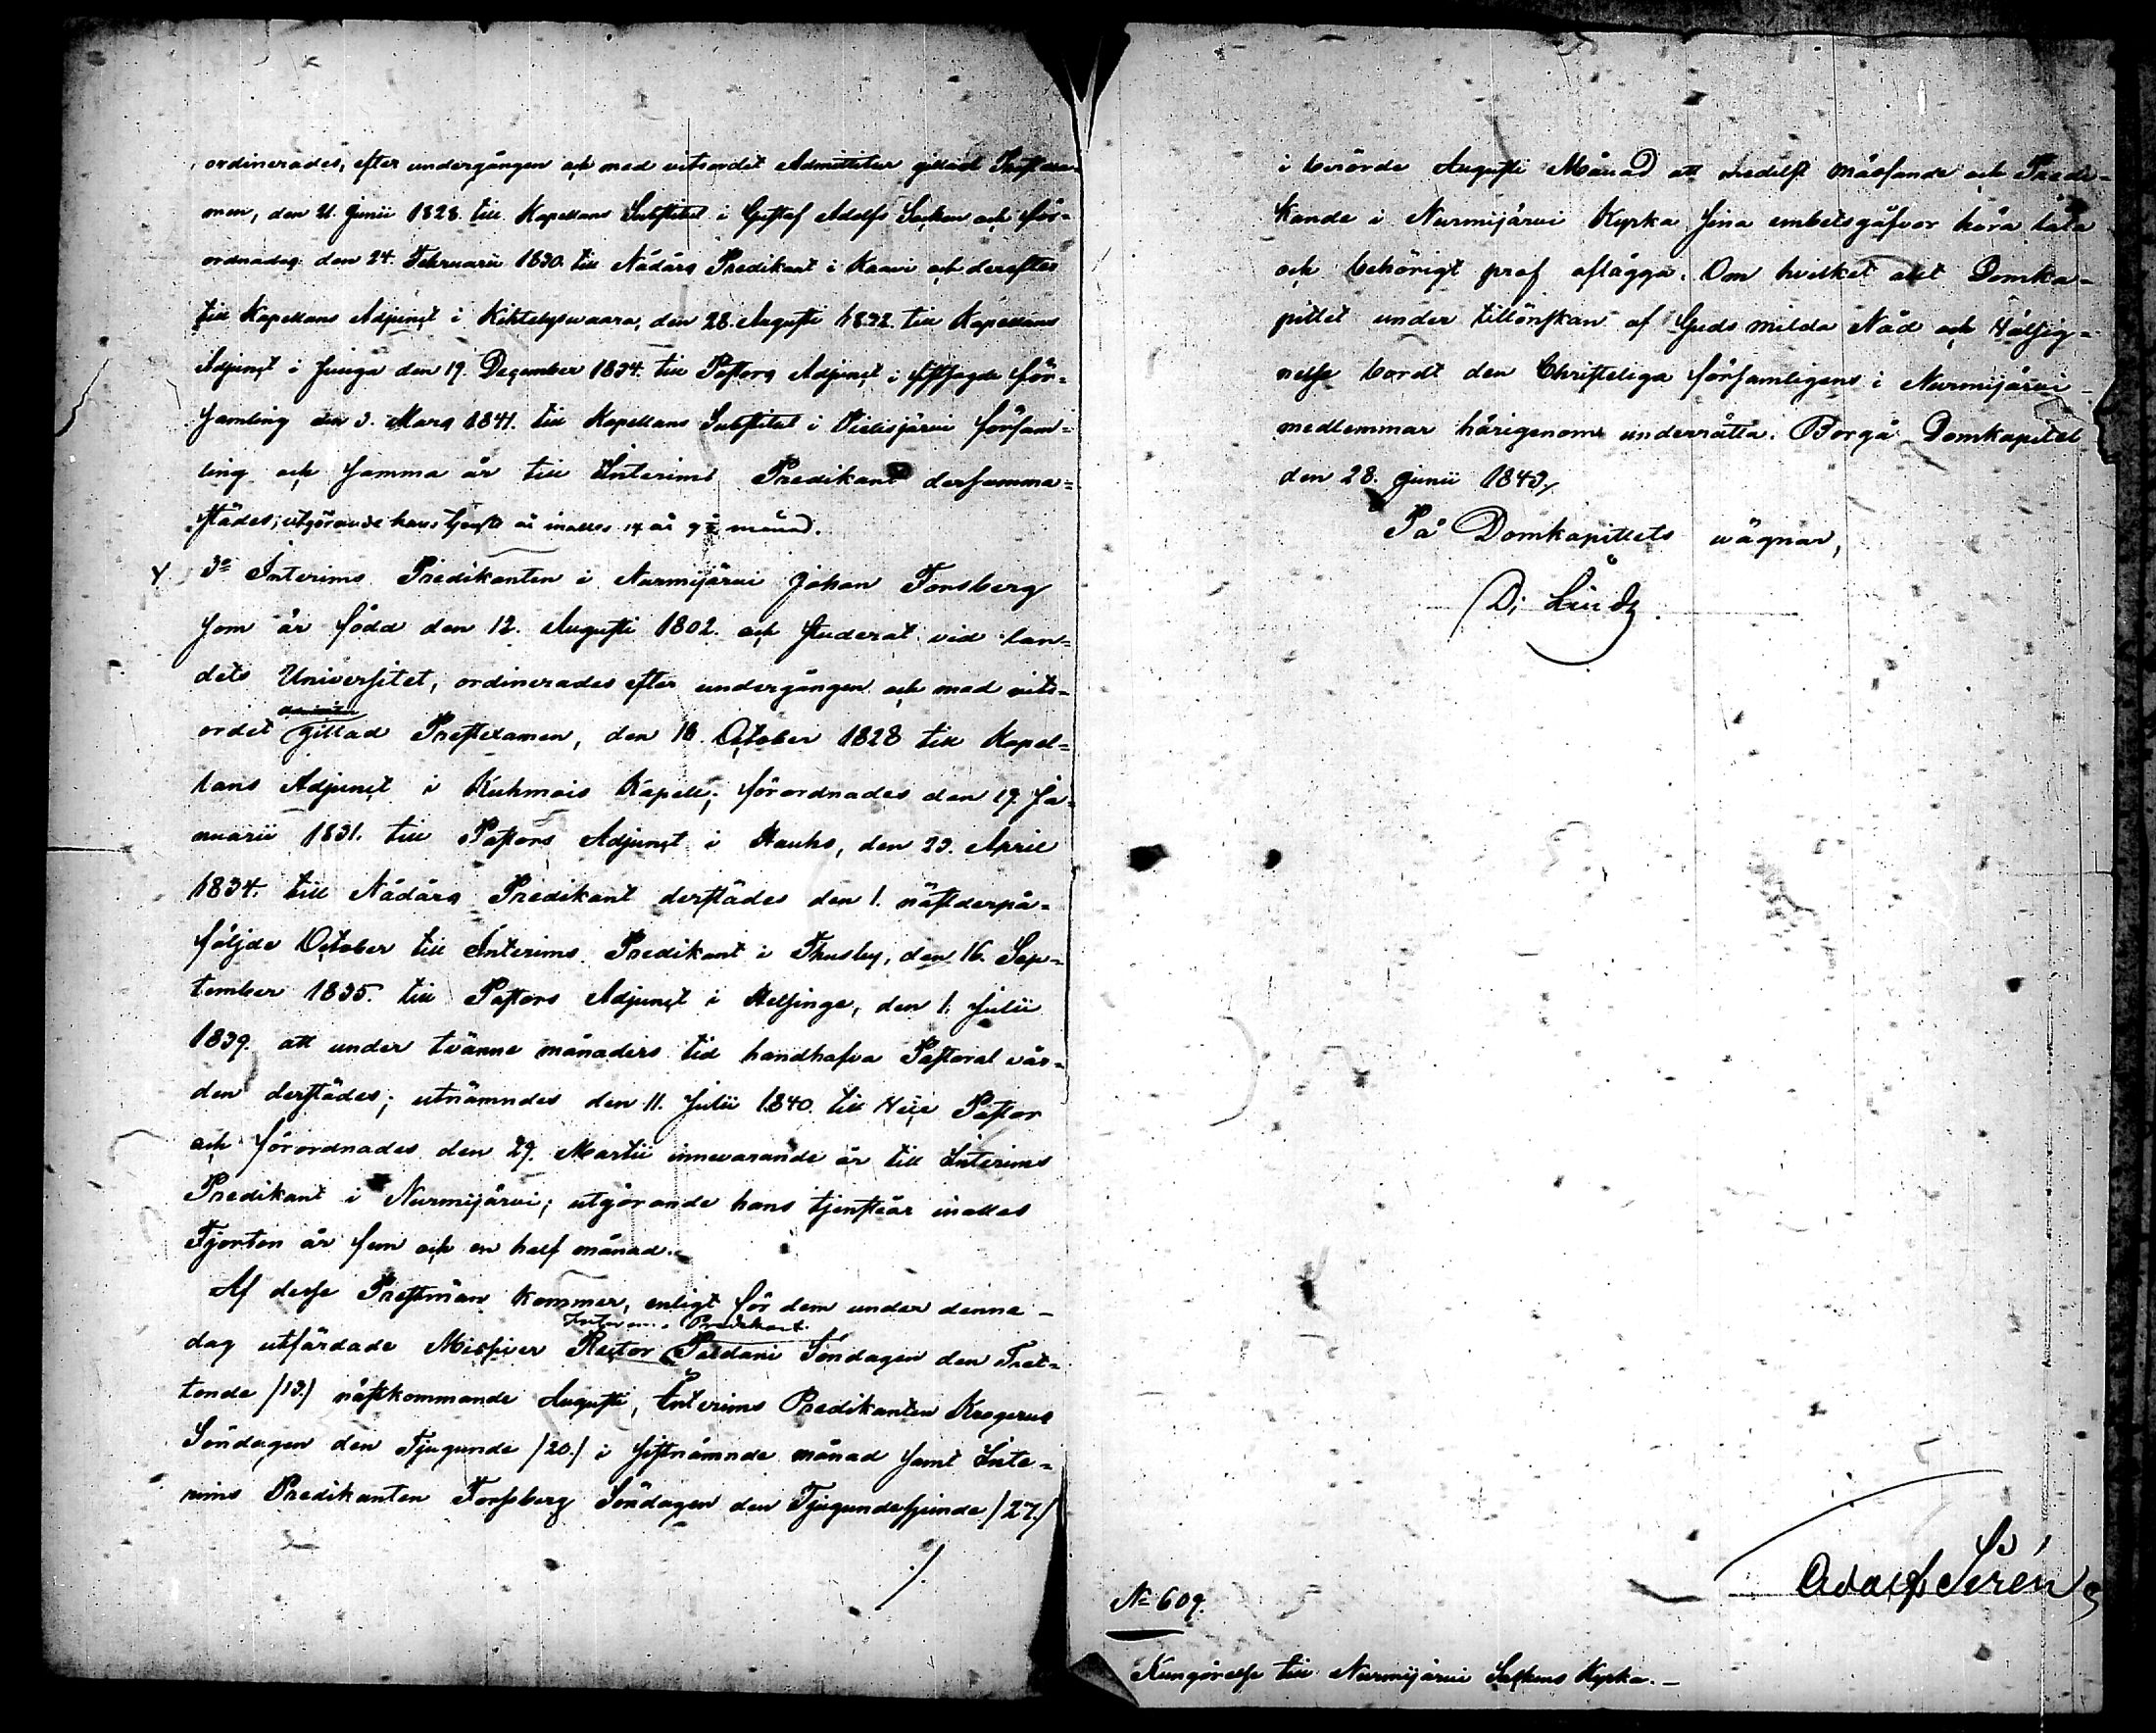 ordinerades, efter undergången och med vitsordet Admittitur gillad Prestexa-
men, den 21. Junii 1828. till Kapellans Substitut i Gustaf Adolfs Socken och för-
ordnades den 24. Februarii 1830. till Nådårs Predikant i Kaavi och derefter
till Kapellans Adjunct i Kiktelyswaara, den 28. Augusti 1832. till Kapellans
Adjunct i Juuga den 19. December 1834. till Pastors Adjunct i sistsagde för-
samling den 3. Mars 1841. till Kapellans Substitut i Pielisjärvi försam-
ling och samma år till Interims Predikant dersamma-
städes; utgörande hans tjenste år inalles 14 år 9½ månad.
3o Interims Predikanten i Nurmijärvi Johan Forsberg
som är född den 12. Augusti 1802. och studerat vid lan-
dets Universitet, ordinerades efter undergången och med vits-
ordet gillad Prestexamen, den 18. October 1828 till Kapel-
lans Adjunct i Kuhmois Kapell; förordnades den 19. Ja-
nuarii 1831. till Pastors Adjunct i Hauho, den 23. April
1834. till Nådårs Predikant derstädes den 1. nästderpå-
följde October till Interims Predikant i Thusby, den 16. Sep-
tember 1835. till Pastors Adjunct i Helsinge, den 1. Julii
1839. att under tvänne månaders tid handhafva Pastoral vår-
den derstädes; utnämndes den 11. Julii 1840. till Vice Pastor
och förordnades den 29. Martii innevarande år till Interims
Predikant i Nurmijärvi; utgörande hans tjenstear inalles
Fjorton år fem och en half månad.
Af desse Prestmän kommer, enligt för dem under denne
Interims Predikant
dag utfärdade Missiver Rector Paldani Söndagen den Tret-
tonde /13./ nästkommande Augusti, Interims Predikanten Krogerus
Söndagen den Tjugunde /20./ i sistnämnde månad samt Inte-
rims Predikanten Forssberg Söndagen den Tjugundesjunde /27./
./.
i berörde Augusti Månad att medelst mässande och Predi-
kande i Nurmijärvi Kyrka sina embetsgåfvor höra låta
och behörigt prof aflägga. Om hvilket allt Domka-
pitlet under tillönskan af Guds milda Nåd och Välsig-
nelse bordt den Christeliga församligens i Nurmijärvi
medlemmar härigenom underrätta. Borgå Domkapitel
den 28. Junii 1843.
På Domkapitlets wägnar,
Adolf Sirén
No 609.
Kungörelse till Nurmijärvi Sockens Kyrka.